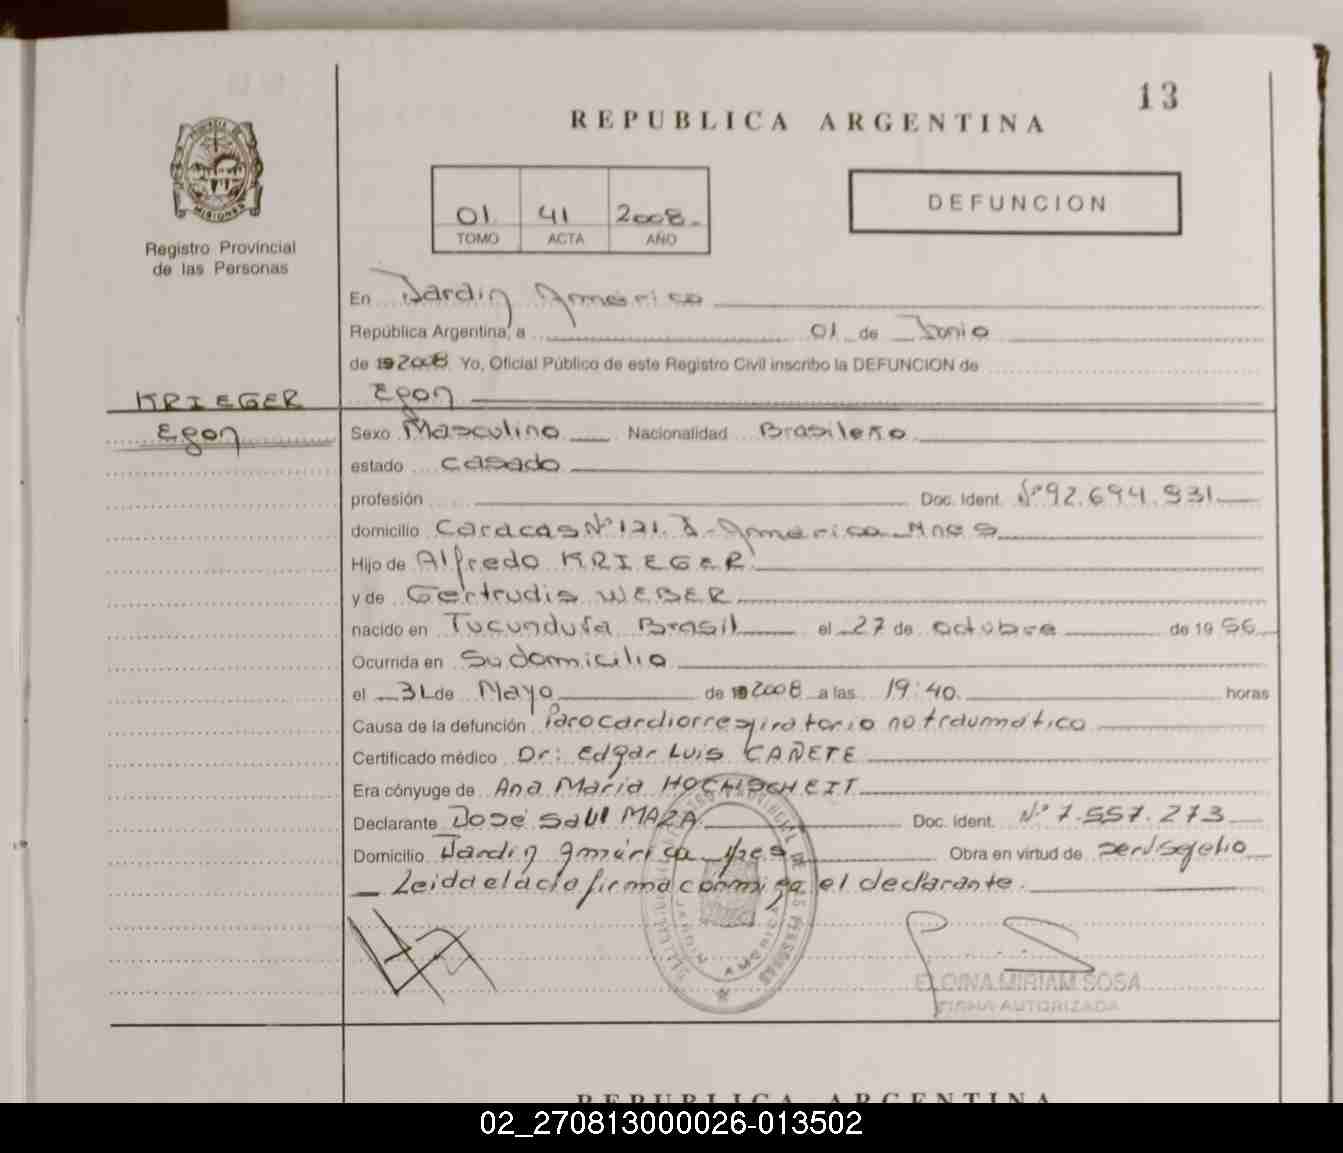 13
REPUBLICA ARGENTINA
DEFUNCION
01 41 2008.-
TOMO ACTA AÑO
Registro Provincial
de las Personas
En Jardin America
República Argentina, a 01 de Junio
de 19 2008 Yo, Oficial Público de este Registro Civil inscribo la DEFUNCION de
KRIEGER Egon
Egon
Sexo Masculino Nacionalidad Brasilero
estado casado
profesión Doc. Ident. Nº 92.694.931
domicilio Caracas Nº 121. J-America Mnes
Hijo de Alfredo KRIEGER
y de Gertrudis WEBER
nacido en Tucunduva Brasil el 27 de octubre de 19 56
Ocurrida en Su domicilio
el 31 de Mayo de 19 2008 a las 19:40. horas
Causa de la defunción Parocardiorrespiratorio no traumatico
Certificado médico Dr: Edgar Luis CAÑETE
Era cónyuge de Ana Maria HOCHSCHEIT
Declarante José Saul MAZA Doc. Ident. Nº 7.557.273
Domicilio Jardin América Obra en virtud de
Leida el acta firma conmigo el declarante.
ELOINA MIRIAM SOSA
FIRMA AUTORIZADA
REPUBLICA ARGENTINA
02_270813000026-013502